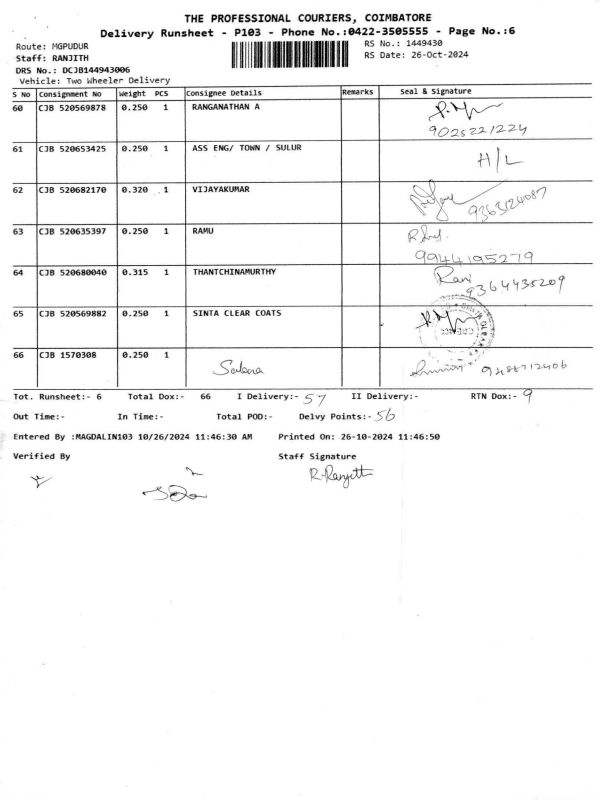 THE PROFESSIONAL COURIERS, COIMBATORE
Delivery Runsheet - P103 - Phone No.:0422-3505555 - Page No.:6
Route: MGPUDUR
RS No.: 1449430
Staff: RANJITH
RS Date: 26-Oct-2024
DRS No.: DCJB144943006
Vehicle: Two Wheeler Delivery
S No Consignment No Weight PCS Consignee Details Remarks Seal & Signature
60 CJB 520569878 0.250 1 RANGANATHAN A
9025221224
61 CJB 520653425 0.250 1 ASS ENG/ TOWN / SULUR H/L
62 CJB 520682170 0.320 1 VIJAYAKUMAR 9363124087
63 CJB 520635397 0.250 1 RAMU
9944195279
64 CJB 520680040 0.315 1 THANTCHINAMURTHY Rani
9364435209
65 CJB 520569882 0.250 1 SINTA CLEAR COATS
66 CJB 1570308 0.250 1
Tot. Runsheet:- 6 Total Dox:- 66 I Delivery:- 57 II Delivery:- RTN Dox:- 9
Out Time:- In Time:- Total POD:- Delvy Points:- 56
Entered By :MAGDALIN103 10/26/2024 11:46:30 AM Printed On: 26-10-2024 11:46:50
Verified By Staff Signature
R.Ranjith